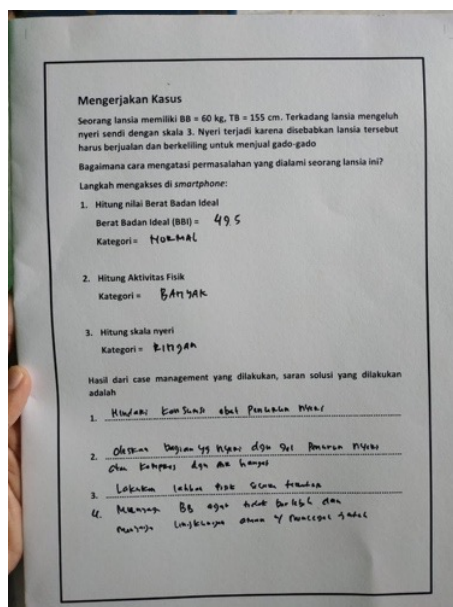 Mengerjakan Kasus
Seorang lansia memiliki BB = 60 kg, TB = 155 cm. Terkadang lansia mengeluh
nyeri sendi dengan skala 3. Nyeri terjadi karena disebabkan lansia tersebut
harus berjualan dan berkeliling untuk menjual gado-gado
Bagaimana cara mengatasi permasalahan yang dialami seorang lansia ini?
Langkah mengakses di smartphone:
1. Hitung nilai Berat Badan Ideal
Berat Badan Ideal (BBI) = 49.5
Kategori = NORMAL
2. Hitung Aktivitas Fisik
Kategori = BANYAK
3. Hitung skala nyeri
Kategori = RINGAN
Hasil dari case management yang dilakukan, saran solusi yang dilakukan
adalah
1. Hindari konsumsi obat Penurun nyeri
2. oleskan bagian yg nyeri dgn gel Penurun nyeri
atau kompres dgn air hangat
3. Lakukan latihan fisik secara
4. Menjaga BB agar tidak berlebih dan
menjaga lingkungan aman y mencegah